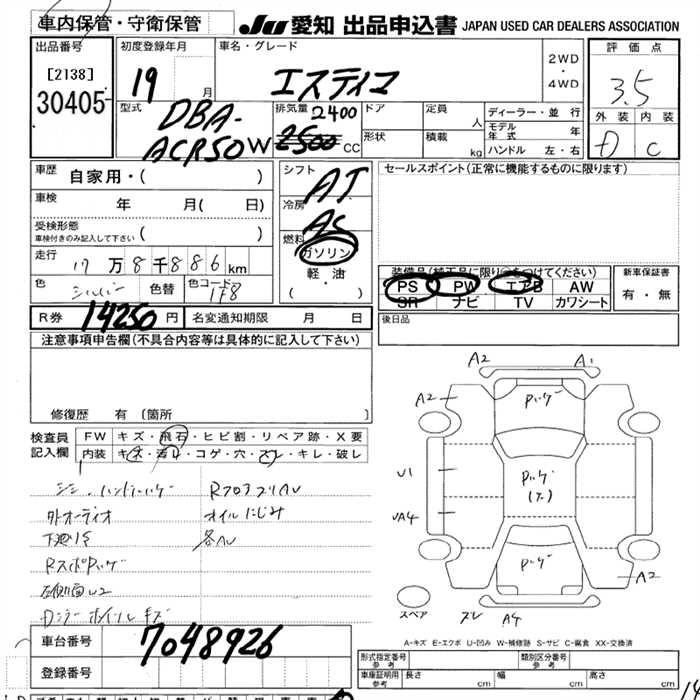 車内保管・守衛保管
JU 愛知 出品申込書 JAPAN USED CAR DEALERS ASSOCIATION
出品番号
[2138]
30405
初度登録年月
19 月
車名・グレード
エスティマ
2WD
・
4WD
評価点
3.5
外装 内装
D C
型式
DBA-
ACR50W
排気量 2400
2500 CC
ドア
形状
定員 人
積載 kg
ディーラー・並行
モデル年式 年
ハンドル 左・右
車歴 自家用・( )
車検 年 月( 日)
受検形態
車検付きのみ記入して下さい ( )
走行 17万8千886km
色 シルバー 色替 色コード 1F8
シフト AT
冷房 AC
燃料 ガソリン
軽・油
( ・ )
セールスポイント(正常に機能するものに限ります)
装備品(純正品に限り○をつけてください)
PS PW エアB AW
SR ナビ TV カワシート
新車保証書
有・無
R券 14250円 名変通知期限 月 日
後日品
注意事項申告欄(不具合内容等は具体的に記入して下さい)
修復歴 有 〔箇所 〕
検査員記入欄
FW キズ・飛石・ヒビ割・リペア跡・X要
内装 キズ・汚れ・コゲ・穴・スレ・キレ・破レ
外オーディオ オイルにじみ
下廻り 各AU
右側面U2
A2 A1
A2 パッゲ
U1
パッゲ
UA4
パッゲ
A2
スペア スレ A4
A-キズ E-エクボ U-凹み W-補修跡 S-サビ C-腐食 XX-交換済
車台番号 7048926
登録番号
形式指定番号 参考
類別区分番号 参考
車庫証明用 参考 長さ cm 幅 cm 高さ cm